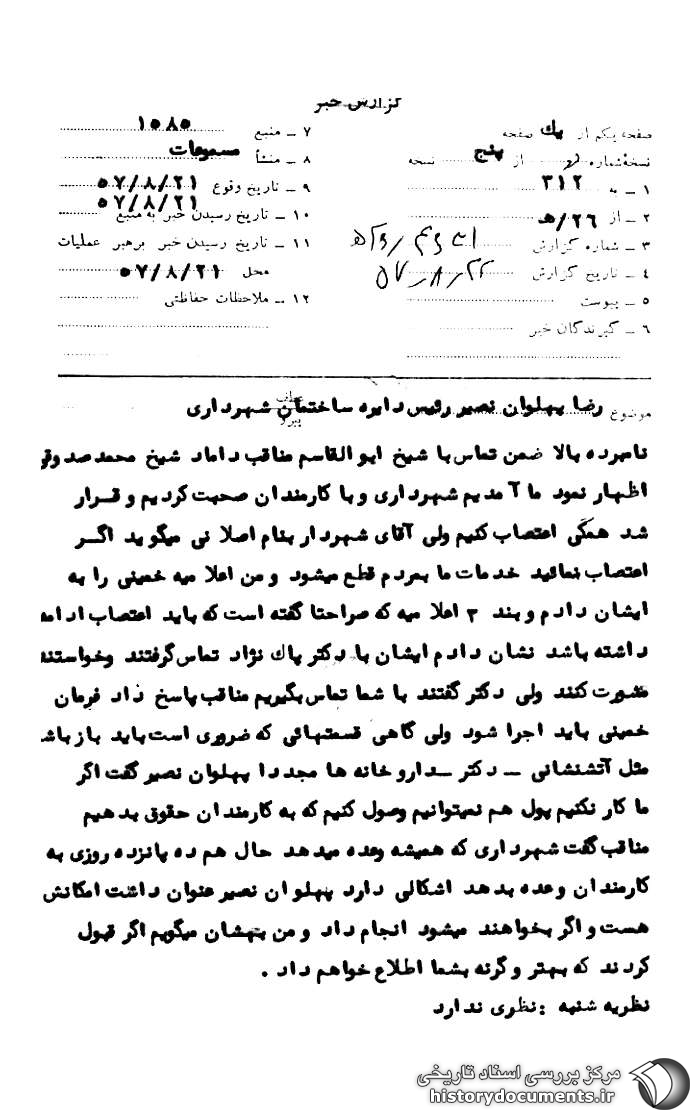 گزارش خبر
صفحه یکم از یك صفحه
نسخه شماره از پنج نسخه
۱ ــ به ۳۱۲
۲ ــ از ۲۶/هـ
۳ ــ شماره گزارش
۴ ــ تاریخ گزارش ۵۷/۸/۲۲
۵ ــ پیوست
۶ ــ گیرندگان خبر
۷ ــ منبع ۱۰۸۵
۸ ــ منشأ مسموعات
۹ ــ تاریخ وقوع ۵۷/۸/۲۱
۱۰ ــ تاریخ رسیدن خبر به منبع ۵۷/۸/۲۱
۱۱ ــ تاریخ رسیدن خبر برهبر عملیات
محل ۵۷/۸/۲۱
۱۲ ــ ملاحظات حفاظتی
موضوع رضا پهلوان نصیر رئیس دایره ساختمان شهرداری
عطف
پیرو
نامبرده بالا ضمن تماس با شیخ ابوالقاسم مناقب داماد شیخ محمد صدوقی
اظهار نمود ما آمدیم شهرداری و با کارمندان صحبت کردیم و قرار
شد همگی اعتصاب کنیم ولی آقای شهردار بنام اصلانی میگوید اگر
اعتصاب نمائید خدمات ما بمردم قطع میشود و من اعلامیه خمینی را به
ایشان دادم و بند ۳ اعلامیه که صراحتا گفته است که باید اعتصاب ادامه
داشته باشد نشان دادم ایشان با دکتر پاك نژاد تماس گرفتند وخواستند
مشورت کنند ولی دکتر گفتند با شما تماس بگیریم مناقب پاسخ داد فرمان
خمینی باید اجرا شود ولی گاهی قسمتهائی که ضروری است باید باز باشد
مثل آتشنشانی ــ دکتر ــ داروخانه ها مجددا پهلوان نصیر گفت اگر
ما کار نکنیم پول هم نمیتوانیم وصول کنیم که به کارمندان حقوق بدهیم
مناقب گفت شهرداری که همیشه وعده میدهد حال هم ده پانزده روزی به
کارمندان وعده بدهد اشکالی دارد پهلوان نصیر عنوان داشت امکانش
هست و اگر بخواهند میشود انجام داد و من بهشان میگویم اگر قبول
کردند که بهتر و گرنه بشما اطلاع خواهم داد .
نظریه شنبه : نظری ندارد
مرکز بررسی اسناد تاریخی
historydocuments.ir